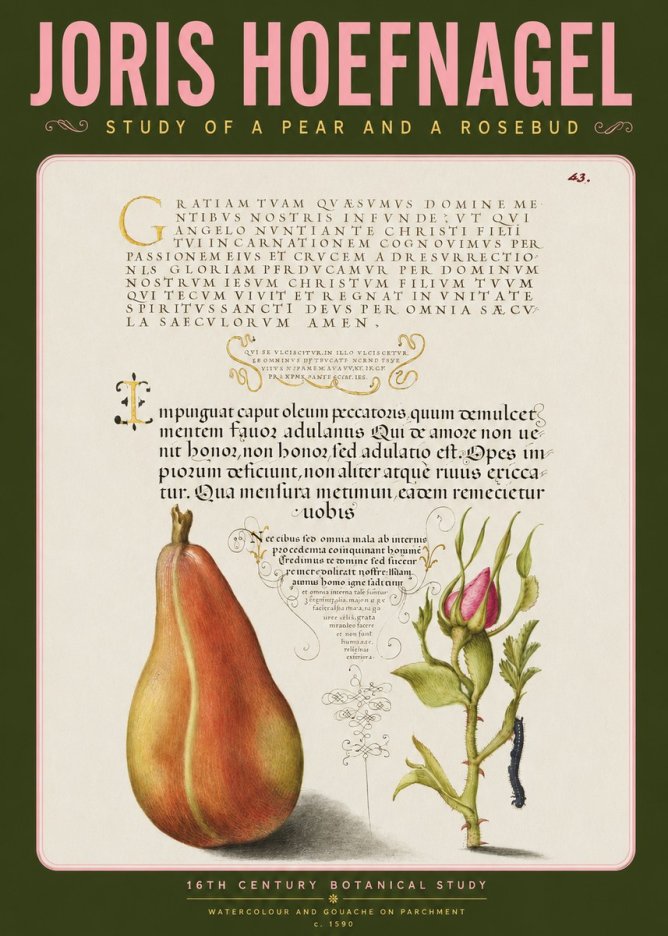 JORIS HOEFNAGEL
STUDY OF A PEAR AND A ROSEBUD
43.
GRATIAM TVAM QVÆSVMVS DOMINE ME
NTIBVS NOSTRIS INFVNDE; VT QVI
ANGELO NVNTIANTE CHRISTI FILII
TVI INCARNATIONEM COGNOVIMVS PER
PASSIONEM EIVS ET CRVCEM AD RESVRRECTIO-
NLS GLORIAM PFRDVCAMVR PER DOMINVM
NOSTRVM IESVM CHRISTVM FILIVM TVVM
QVI TECVM VIVIT ET REGNAT IN VNITATE
SPIRITVS SANCTI DEVS PER OMNIA SÆCV-
LA SAECVLORVM AMEN.
QVI SE VLCISCITVR, IN ILLO VLCISCETVR
Inpinguat caput oleum peccatoris quum demulcet
mentem fauor adulantis Qui de amore non ue-
nit honor, non honor, sed adulatio est. Opes im
piorum deficiunt, non aliter atquè riuus exicca-
tur. Qua mensura metimun, eadem remecietur
uobis
Nec cibus sed omnia mala ab internis
procedenta coinquinant homine
Credimus te domine sed
homo igne
et omnia interna tale
grata
facere
et non sunt
humanae
exteriora
16TH CENTURY BOTANICAL STUDY
WATERCOLOUR AND GOUACHE ON PARCHMENT
c. 1590